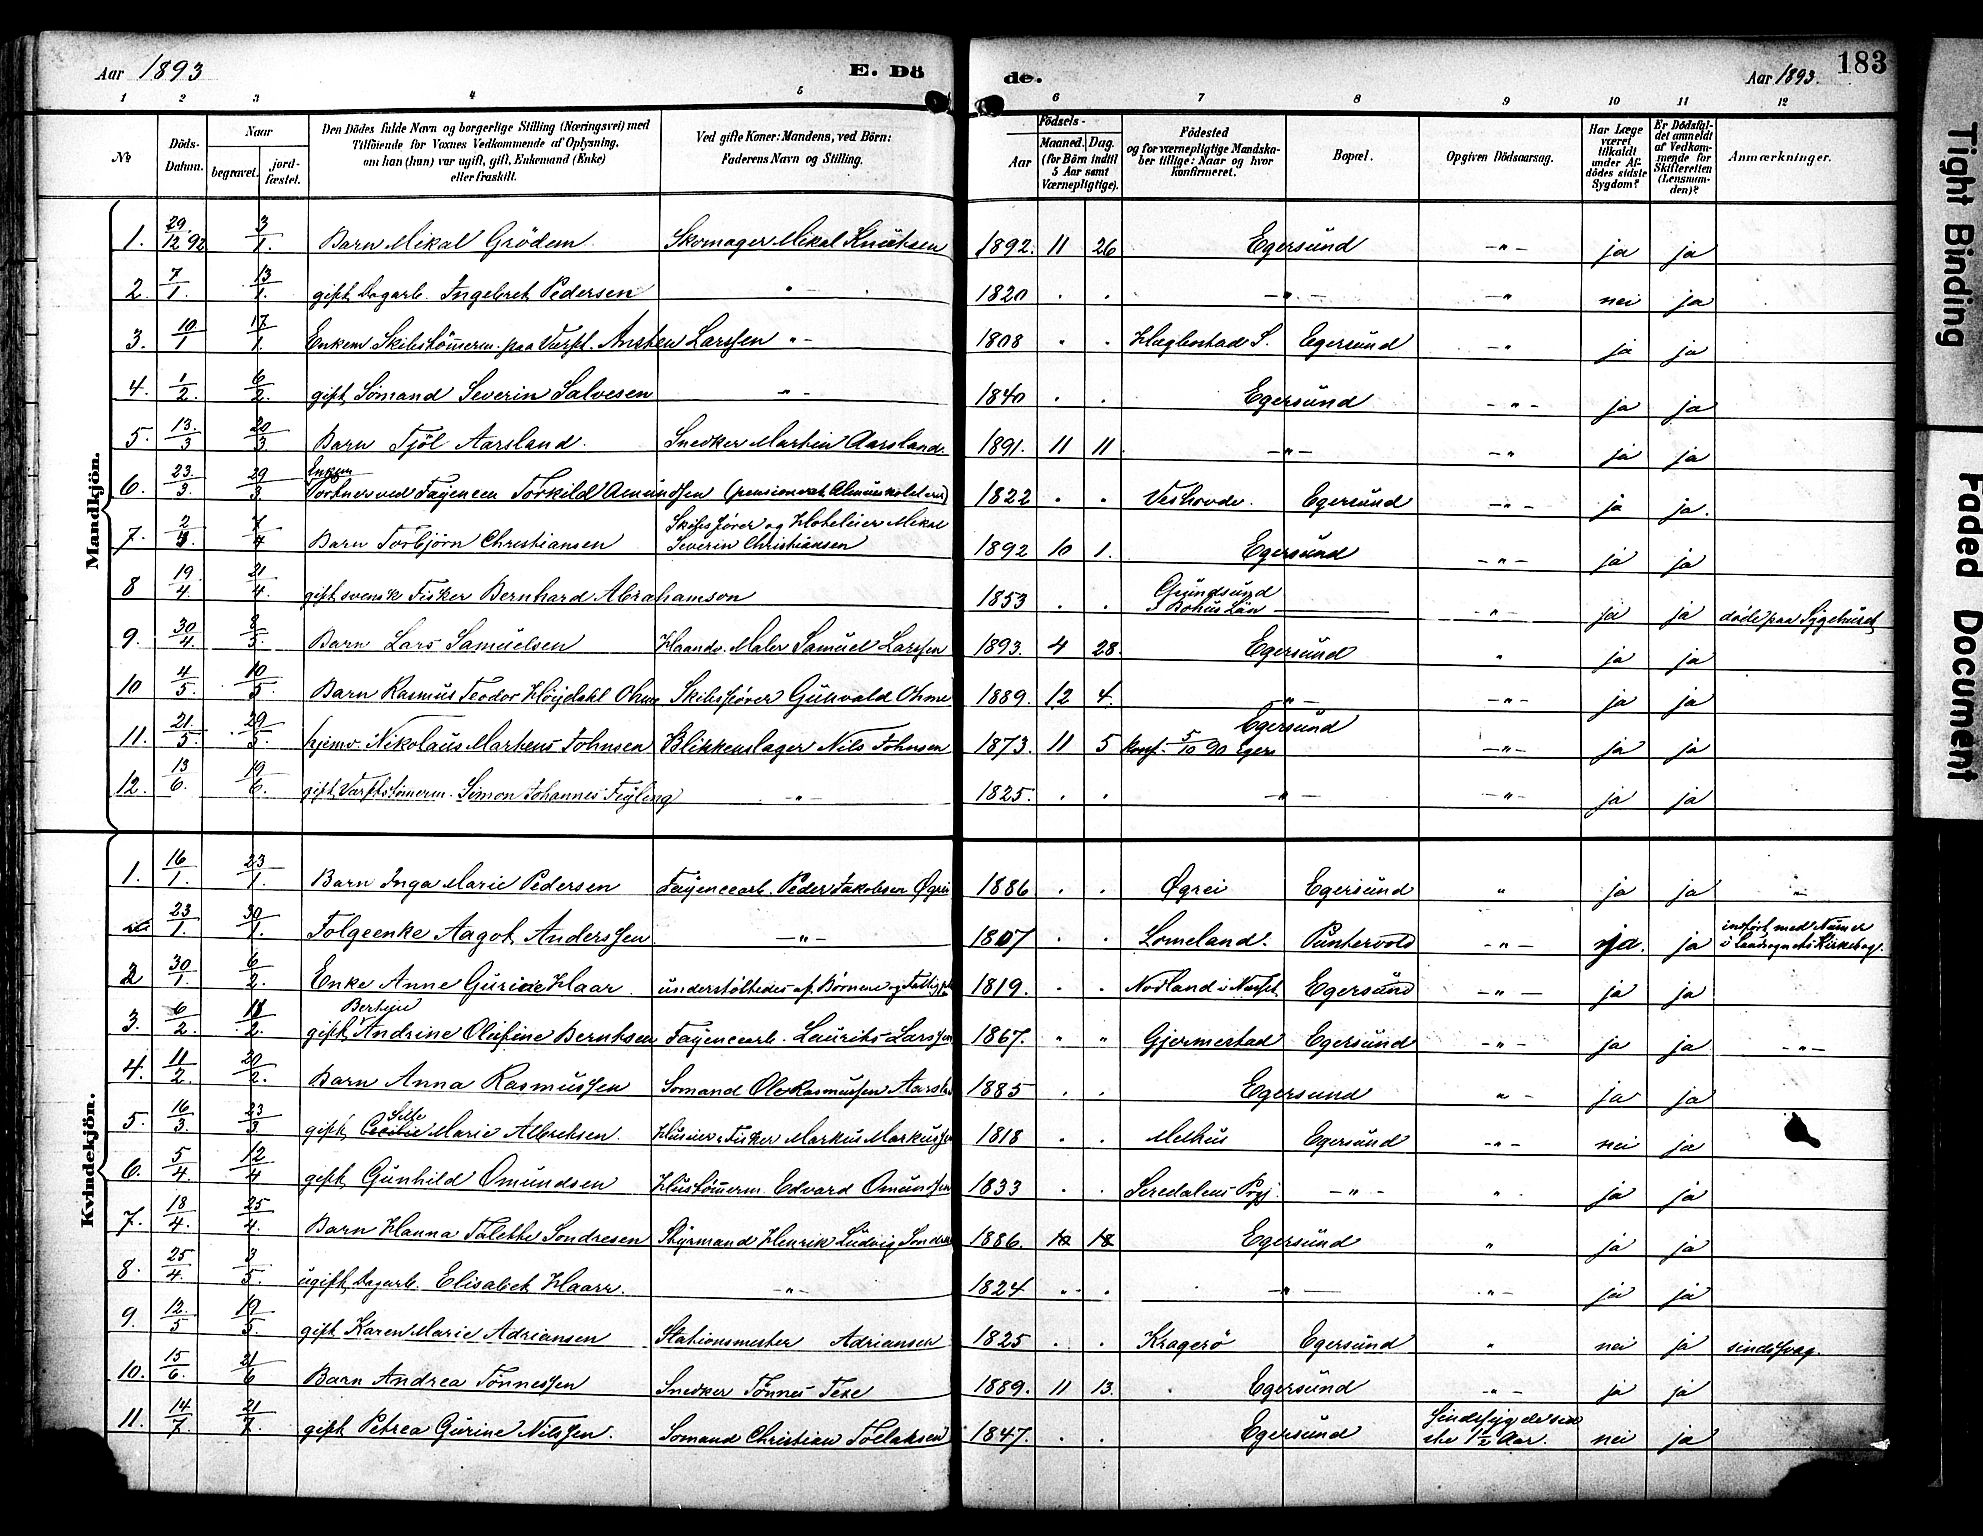 Aar 1893 E. Dö de. Aar 1893. 183
Tight Binding
Faded Document
1 2 3 4 5 6 7 8 9 10 11 12
No
Döds-Datum.
Naar
begravet.
jord-fæstet.
Den Dödes fulde Navn og borgerlige Stilling (Næringsvei) med
Tilföiende for Voxnes Vedkommende af Oplysning,
om han (hun) var ugift, gift, Enkemand (Enke)
eller fraskilt.
Ved gifte Koner: Mandens, ved Börn:
Faderens Navn og Stilling.
Födsels-
Aar
Maaned. Dag.
(for Börn indtil
5 Aar samt
Værnepligtige).
Födested
og for værnepligtige Mandska-
ber tillige: Naar og hvor
konfirmeret.
Bopæl.
Opgiven Dödsaarsag.
Har Læge
været
tilkaldt
under Af-
dödes sidste
Sygdom?
Er Dödsfal-
det anmeldt
af Vedkom-
mende for
Skifteretten
(Lensman-
den)?
Anmærkninger.
Mandkjön.
1. 29/12 92 3/1. Barn Mikal Grödem Skomager Mikal Knutsen 1892. 11 26 Egersund -"- ja ja
2. 7/1 13/1. gift Dagarb. Ingebret Pedersen " 1820 . . -"- -"- nei ja
3. 10/1 17/1. Enkem. Skibstömerm. paa Værft. Ansten Larssen "- 1808 " . Hægbostad S. Egersund -"- ja ja
4. 1/2 6/2. gift Sömand Severin Salvesen -"- 1840 . . Egersund -"- ja ja
5. 13/3 20/3. Barn Tjöl Aarsland. Snedker Martin Aarsland. 1891. 11 11. -"- -"- ja ja
6. 23/3. 29/3 Enkem Portner ved Fayencen Torkild Aamundsen 1822 . . Veshovde. Egersund -"- ja ja.
7. 7/4 Barn Torbjörn Christiansen Skibsförer og Hoteleier Mikal
Severin Christiansen 1892 10 1. Egersund -"- ja ja
8 19/4. 21/4. gift svensk Fisker Bernhard Abrahamson 1853 . . Grundsund
i Bohus Län " ja ja döde paa Sygehuset
9. 30/4 8/5. Barn Lars Samuelsen Haandv. Maler Samuel Larssen 1893. 4 28. Egersund " ja ja
10 4/5. 10/5. Barn Rasmus Teodor Höydahl Ohme Skibsförer Gunvald Ohme 1889. 12 4. -"- -"- ja ja
11. 21/5. 29/5. hjemv. Nikolaus Martens Johnsen Blikkenslager Nils Johnsen 1873. 11 5 Egersund
konf. 5/10 90 Egers -"- ja ja
12. 13/6. 19/6. gift Værftstömerm. Simon Johannes Fugling -"- 1825. . . -"- -"- ja ja
Kvindekjön.
1. 16/1. 23/1. Barn Inga Marie Pedersen Fayencearb. Peder Jakobsen Øgrei 1886 . . Øgrei Egersund " ja ja "
23/1. 30/1. Folgeenke Aagot Anderssen -"- 1807 . . Lomeland. Puntervold -"- ja. ja indfört med Numer
i Landsognets Kirkebog.
2 30/1 6/2. Enke Anne Gurine Haar. understöttedes af Börnene og 1819. . . Nodland i Egersund -"- ja ja
3. 6/2. 11/2. Bertine gift Andrine Olufine Berntsen Fayencearb. Laurits Larssen 1867. " " Gjermestad Egersund -"- ja ja -"-
4. 11/2 20/2. Barn Anna Rasmussen Sömand Ole Rasmussen Aarsland 1885 . . Egersund "- ja ja
5. 16/3 23/3. Silje gift Cecilie Marie Albrethsen. Huseier, Fisker Markus Markussen 1818 . . Melhus Egersund -"- nei ja
6. 5/4 12/4 gift Gunhild Omundsen Hustömerm. Edvard Omundsen 1833 . . Siredalens Prgj. -"- " ja ja
7. 18/4. 25/4. Barn Hanna Talette Sondresen Styrmand Henrik Ludvig Sondresen 1886. 12 18 Egersund " ja ja
8. 25/4. 3/5. ugift Dagarb. Elisabet Haarr. -"- 1824 " . -"- -"- ja ja
9. 12/5 19/5. gift Karen Marie Adriansen Stationsmester Adriansen 1825 . . Kragerö Egersund " nei ja sindssvag.
10. 15/6. 21/6 Barn Andrea Tönnessen Snedker Tönnes Texe 1889. 11 13. Egersund -"- ja ja
11. 14/7. 21/7. gift Petrea Gurine Nilssen. Sömand Christian Tollaksen 1847. . . Egersund Sindssyg de sid
ste 1½ Aar. nei ja